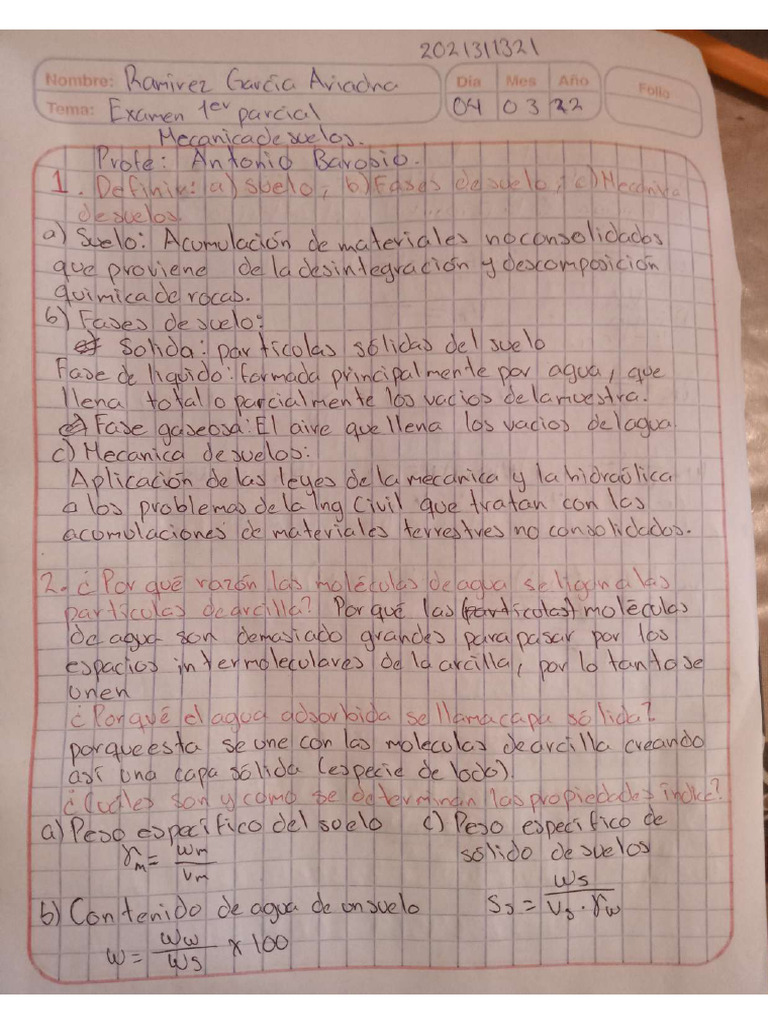 2021311321
Nombre: Ramirez Garcia Ariadna Día Mes Año Folio
Tema: Examen 1er parcial 04 03 22
Mecanica de suelos.
Profe: Antonio Barosio.
1. Definir: a) suelo, b) Fases de suelo, c) Mecánica
de suelos
a) Suelo: Acumulación de materiales no consolidados
que proviene de la desintegración y descomposición
quimica de rocas.
b) Fases de suelo:
Solida: partícolas sólidas del suelo
Fase de liquido: formada principalmente por agua, que
llena total o parcialmente los vacios de la muestra.
Fase gaseosa: El aire que llena los vacios del agua
c) Mecanica de suelos:
Aplicación de las leyes de la mecánica y la hidraúlica
a los problemas de la Ing Civil que tratan con las
acomulaciones de materiales terrestres no consolidados.
2.- ¿Por qué razón las moléculas de agua se ligan a las
partículas de arcilla? Por qué las (partícolas) moléculas
de agua son demasiado grandes para pasar por los
espacios intermoleculares de la arcilla, por lo tanto se
unen
¿Por qué el agua adsorbida se llama capa sólida?
porque esta se une con las moleculas de arcilla creando
así una capa sólida (especie de lodo).
¿Cuáles son y como se determinan las propiedades indice?
a) Peso específico del suelo c) Peso específico de
sólido de suelos
γm = Wm / Vm
Ss = Ws / Vs · γw
b) Contenido de agua de un suelo
w = Ww / Ws x 100